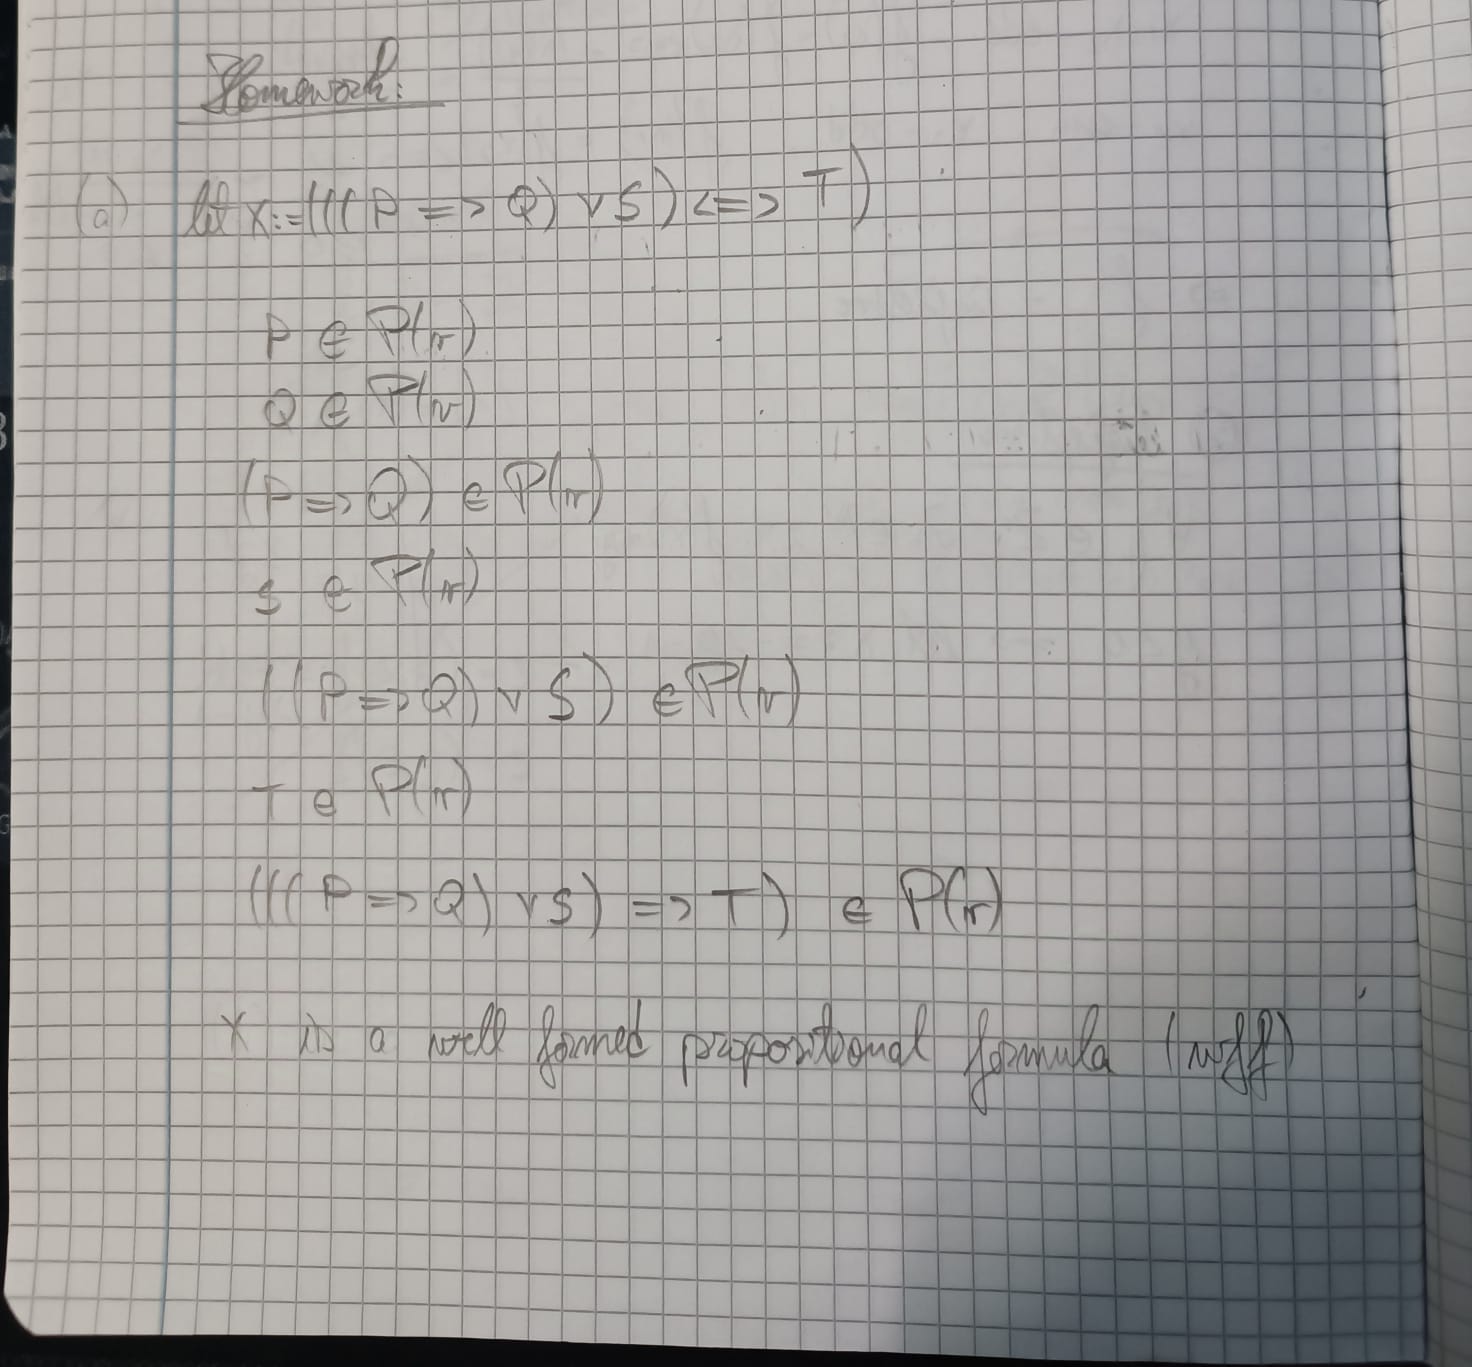 Homework:
(a) let x:=(((P => Q) ∨ S) <=> T)
P ∈ P(v)
Q ∈ P(v)
(P => Q) ∈ P(v)
S ∈ P(v)
((P => Q) ∨ S) ∈ P(v)
T ∈ P(v)
(((P => Q) ∨ S) => T) ∈ P(v)
x is a well formed propositional formula (wff)